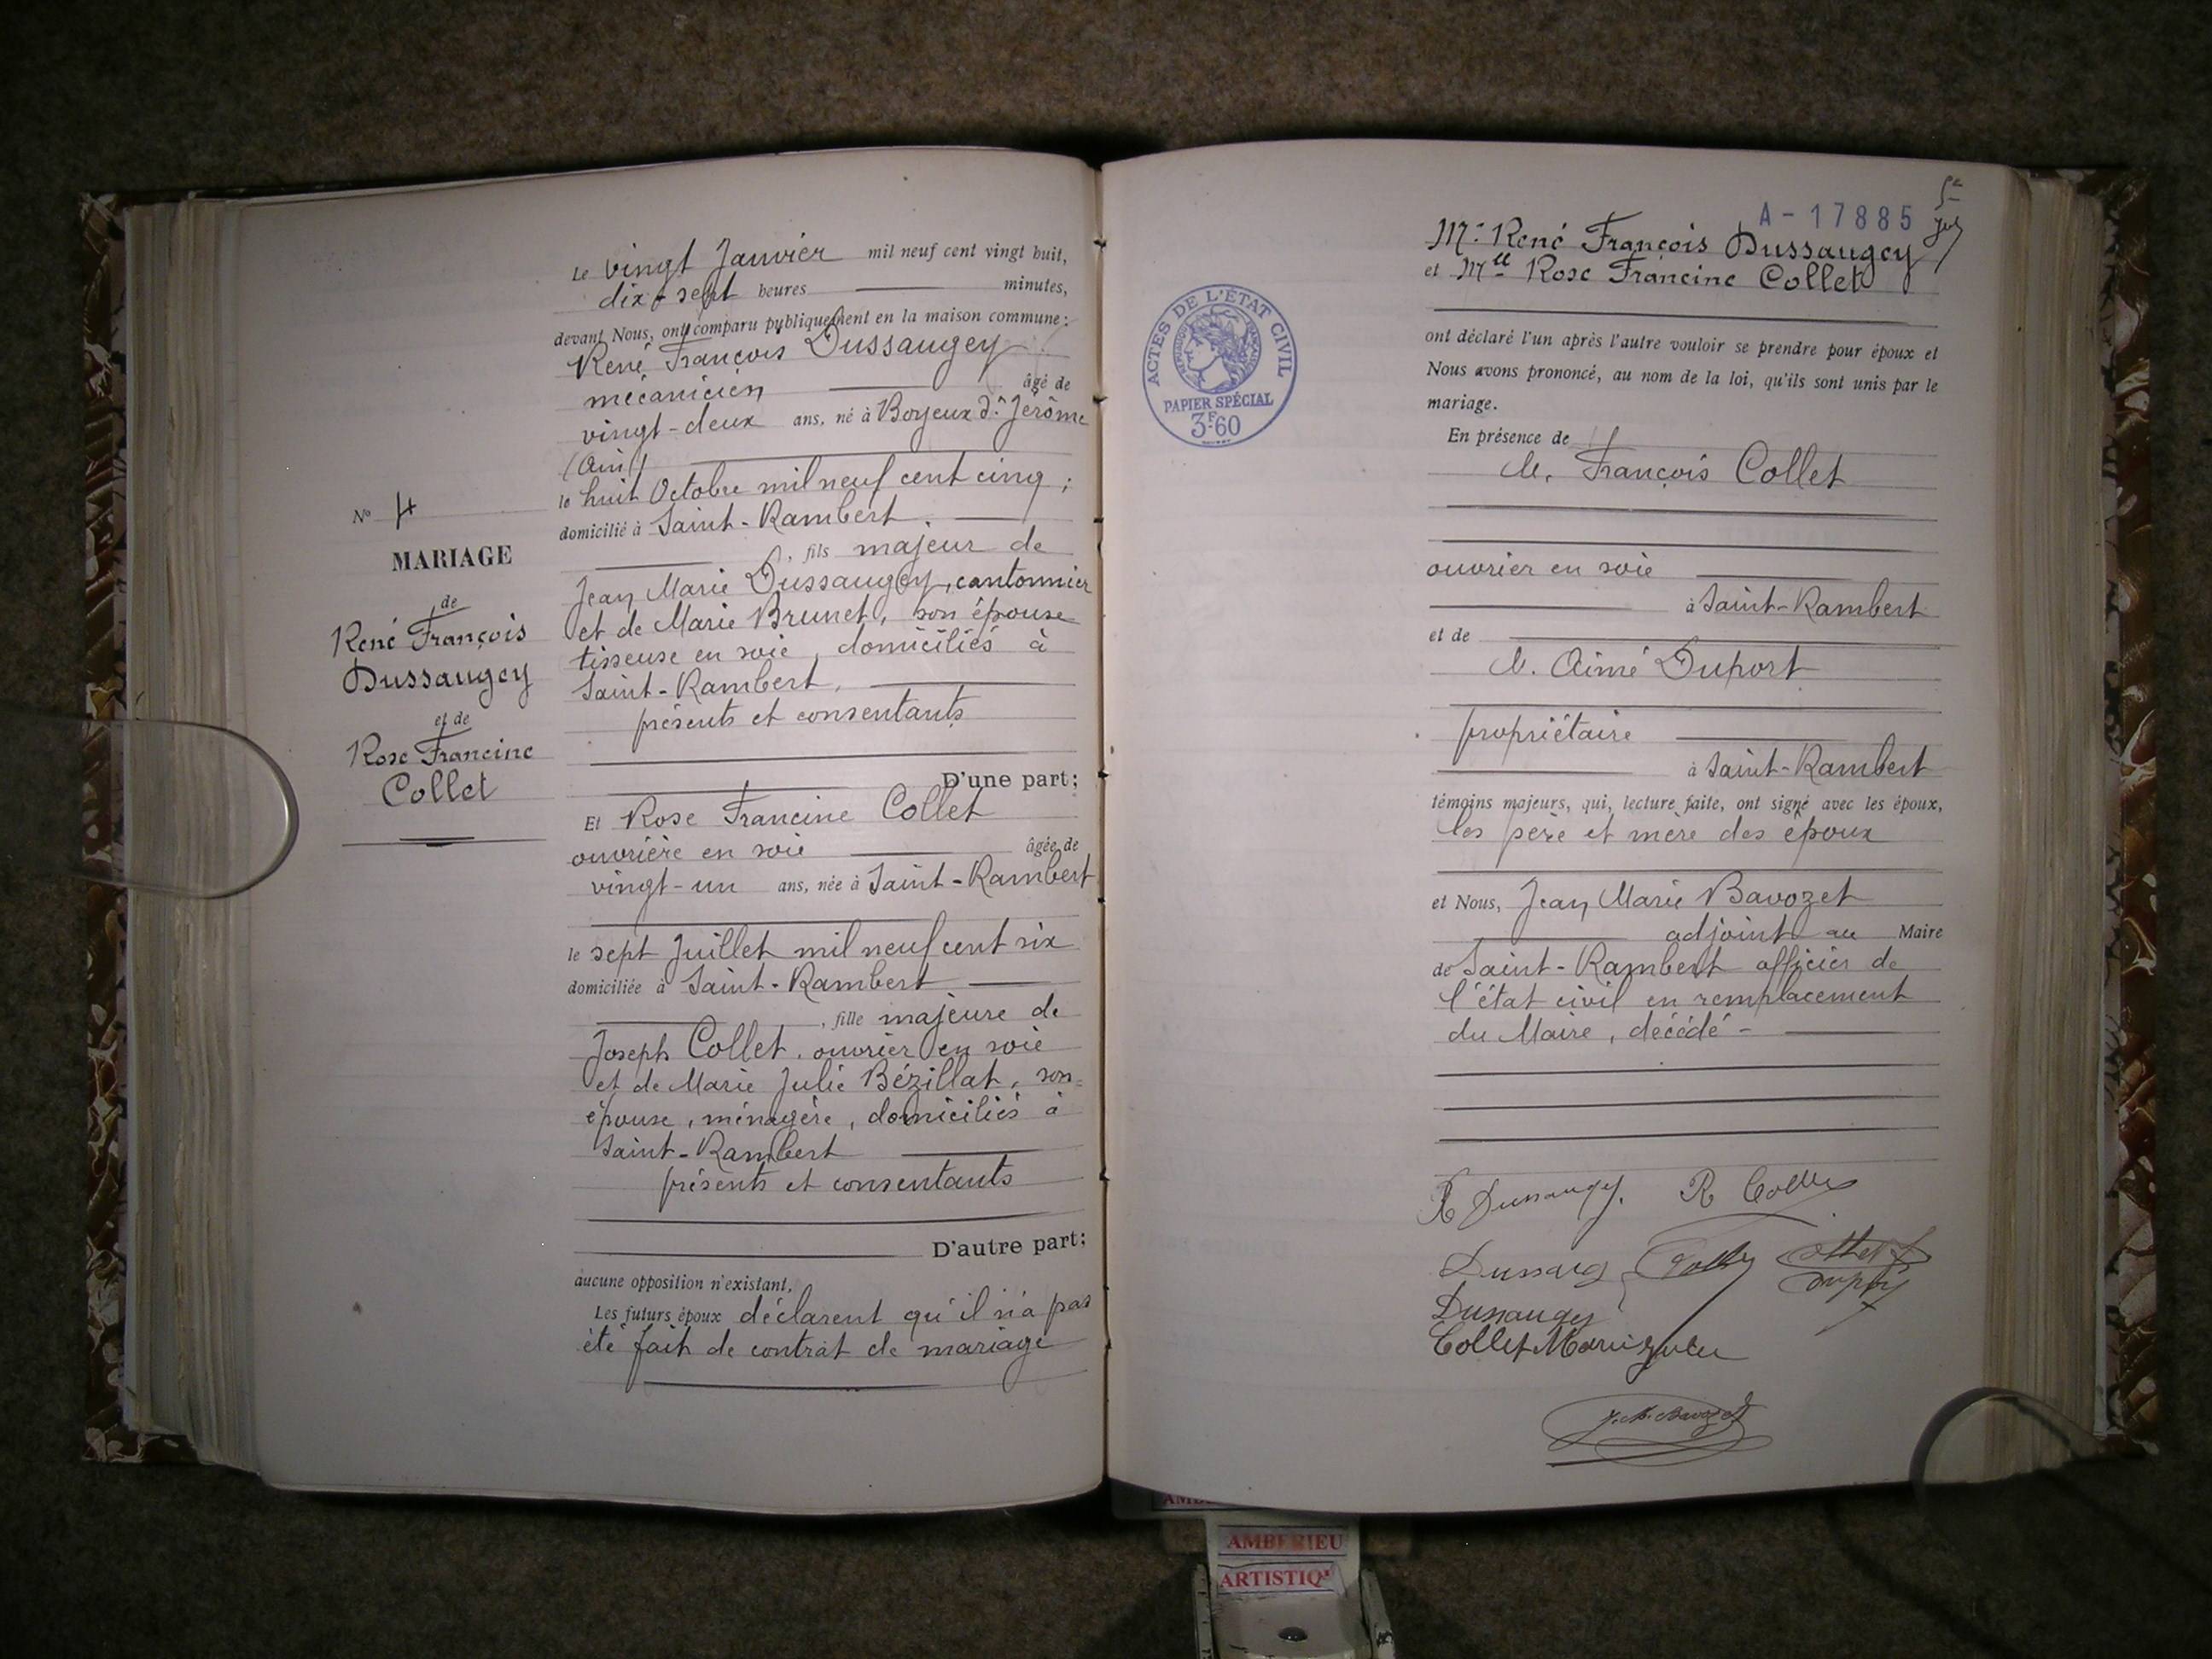 Le vingt Janvier mil neuf cent vingt huit,
dix-sept heures minutes,
devant Nous, ont comparu publiquement en la maison commune:
René François Dussaugey
mécanicien âgé de
vingt-deux ans, né à Boyeux St Jérôme
(Ain)
le huit Octobre mil neuf cent cinq ;
domicilié à Saint-Rambert
, fils majeur de
Jean Marie Dussaugey, cantonnier
et de Marie Brunet, son épouse
tisseuse en soie, domiciliés à
Saint-Rambert,
présents et consentants
D'une part;
Et Rose Francine Collet
ouvrière en soie âgée de
vingt-un ans, née à Saint-Rambert
le sept Juillet mil neuf cent six
domiciliée à Saint-Rambert
, fille majeure de
Joseph Collet, ouvrier en soie
et de Marie Julie Bézillat, son=
épouse, ménagère, domiciliés à
Saint-Rambert
présents et consentants
D'autre part;
aucune opposition n'existant,
Les futurs époux déclarent qu'il n'a pas
été fait de contrat de mariage
N° 4
MARIAGE
de
René François
Dussaugey
et de
Rose Francine
Collet
A-17885
Mr René François Dussaugey
et Mlle Rose Francine Collet
ont déclaré l'un après l'autre vouloir se prendre pour époux et
Nous avons prononcé, au nom de la loi, qu'ils sont unis par le
mariage.
En présence de
M. François Collet
ouvrier en soie
à Saint-Rambert
et de
M. Aimé Duport
propriétaire
à Saint-Rambert
témoins majeurs, qui, lecture faite, ont signé avec les époux,
les père et mère des époux
et Nous, Jean Marie Bavozet
adjoint au Maire
de Saint-Rambert officier de
l'état civil en remplacement
du Maire, décédé -
R Dussaugey. R Collet
Dussaug Collet Collet F
Duport
Dussaugey
Collet Marie Julie
J. M. Bavozet
ACTES DE L'ÉTAT CIVIL
RÉPUBLIQUE FRANÇAISE
PAPIER SPÉCIAL
3F60
AMBERIEU
ARTISTIQ